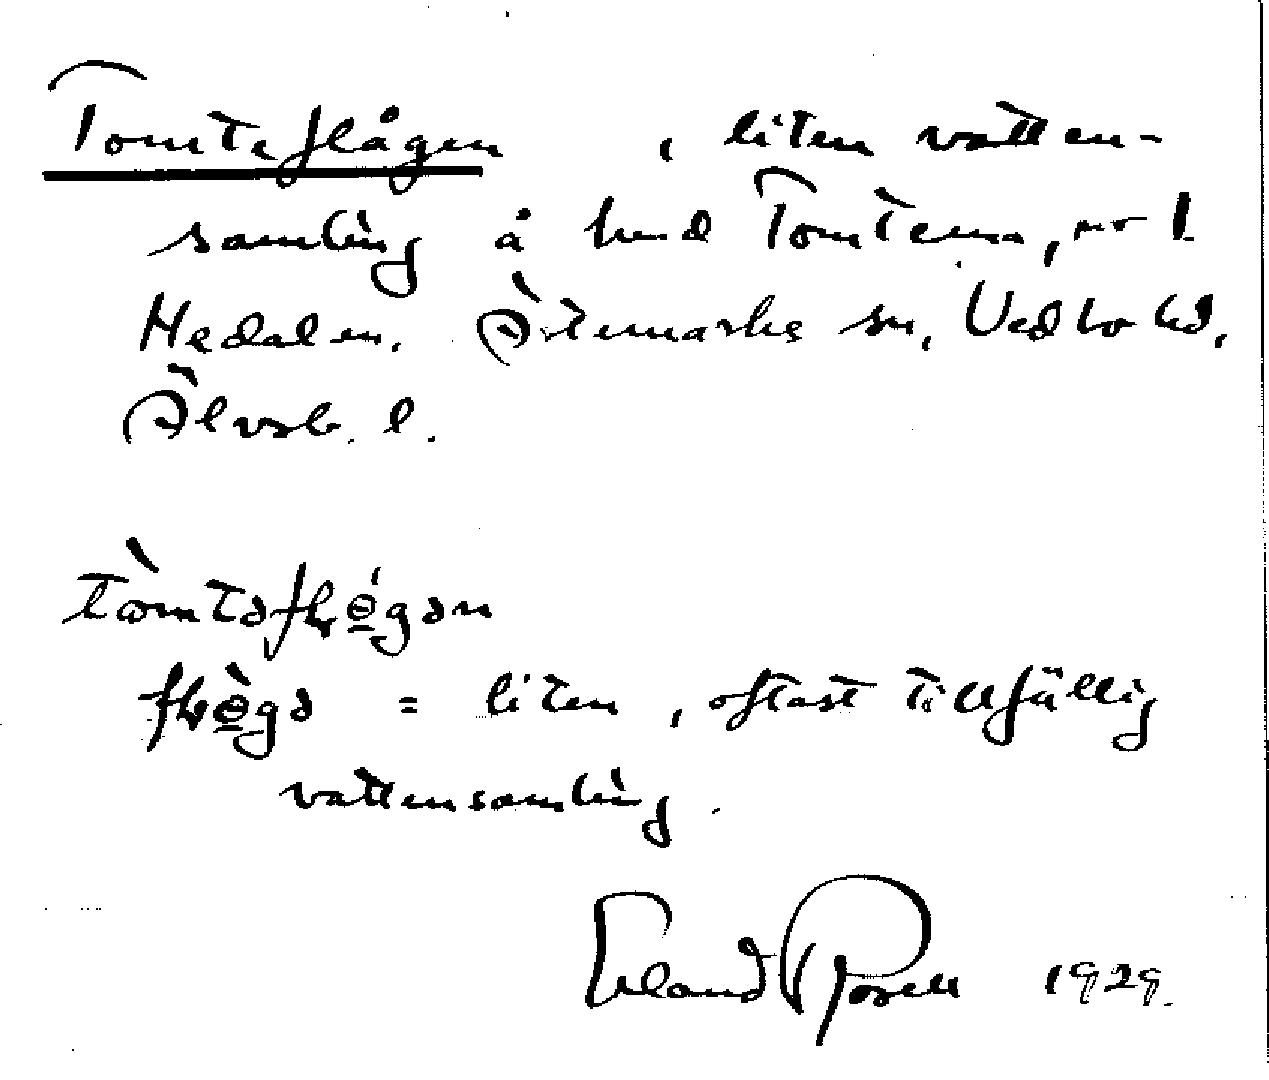 Tomteflågen , liten vatten-
samling å hmd Tomten, nr 1
Hedalen. Ärtemarks sn, Vedbo hd,
Älvsb. l.
tòmtəflɵ́gən
flɵ̀gə = liten, oftast tillfällig
vattensamling.
Erland Rosell 1929.